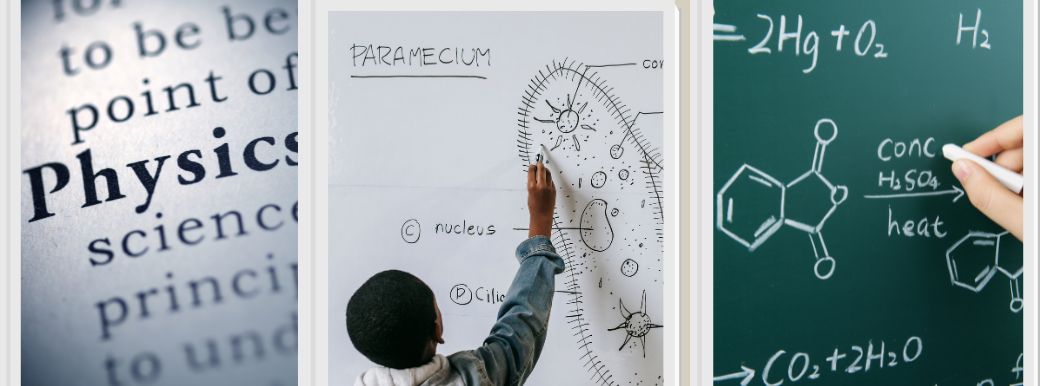 to be be
point of
Physics
science
princip
to und
PARAMECIUM
con
C nucleus
D Cilia
= 2Hg + O₂ H₂
conc
H₂SO₄
heat
→ CO₂ + 2H₂O